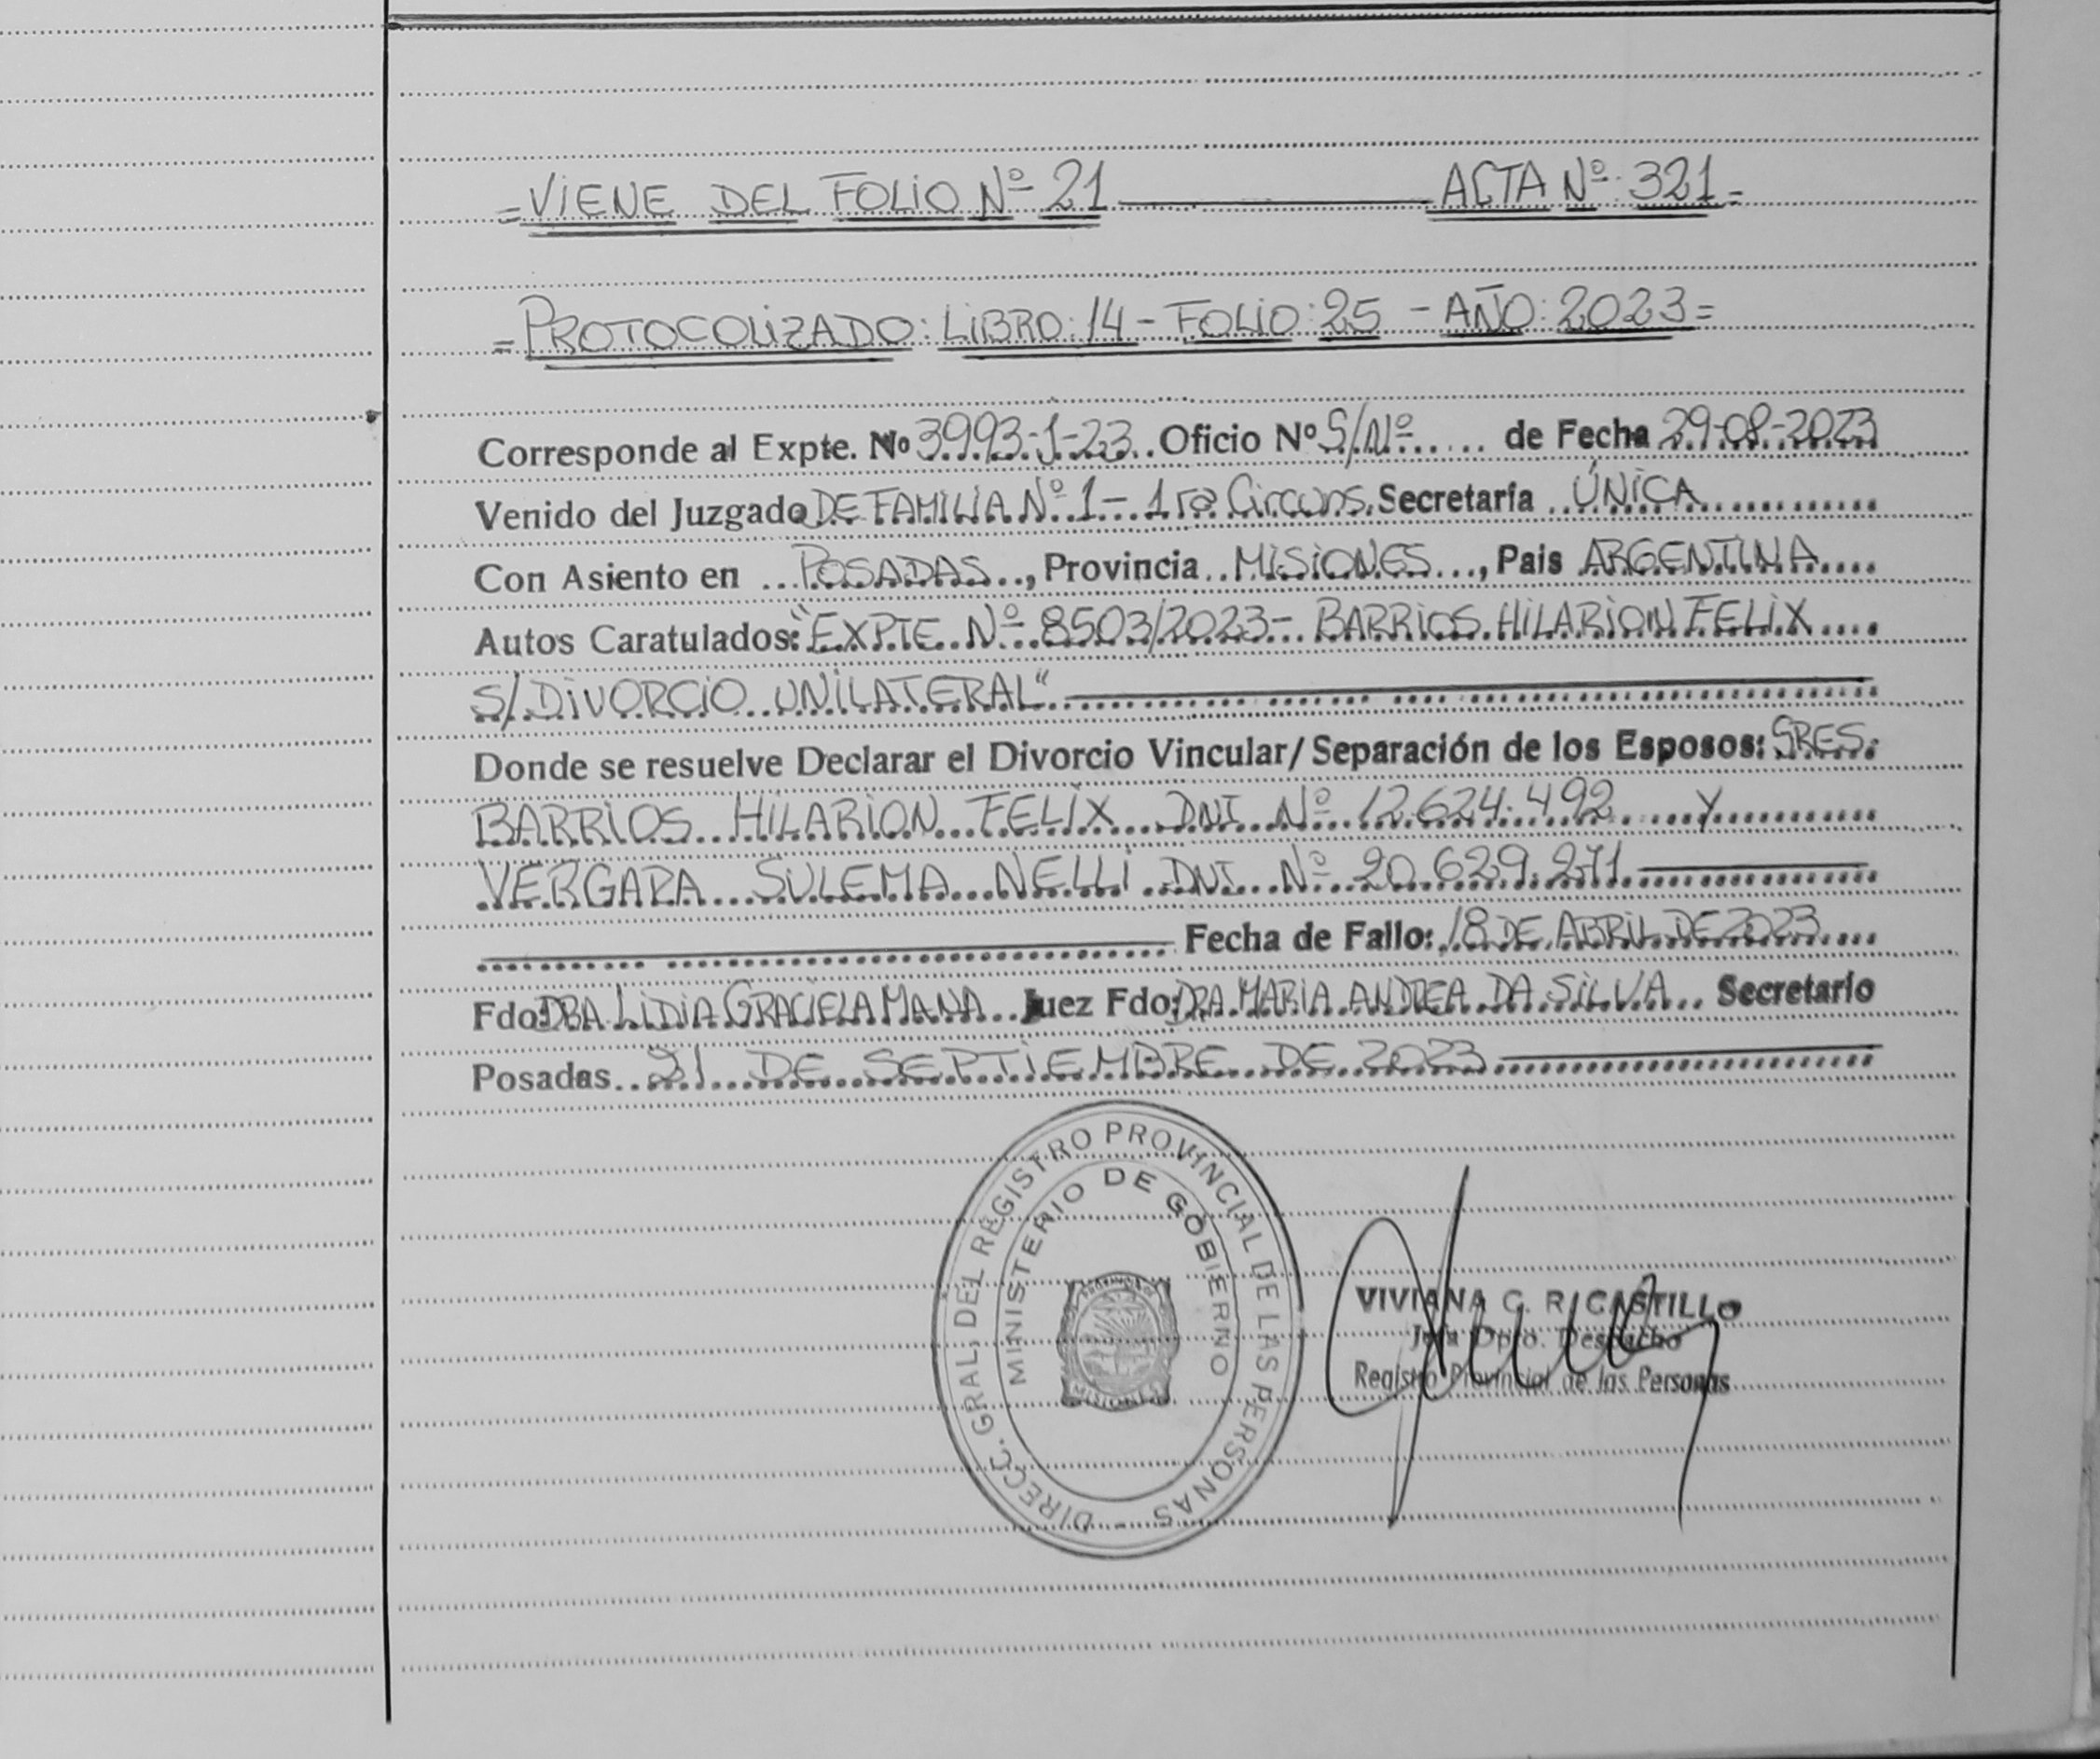 =VIENE DEL FOLIO Nº 21 ACTA Nº 321=
=PROTOCOLIZADO: LIBRO: 14 - FOLIO: 25 - AÑO: 2023=
Corresponde al Expte. No 3993-J-23.. Oficio Nº S/Nº..... de Fecha 29-08-2023
Venido del Juzgado DE FAMILIA Nº 1 - 1ra Circuns. Secretaría ..ÚNICA............
Con Asiento en ...POSADAS..., Provincia..MISIONES..., Pais ARGENTINA....
Autos Caratulados: "EXPTE Nº 8503/2023- BARRIOS HILARION FELIX....
S/DIVORCIO UNILATERAL"
Donde se resuelve Declarar el Divorcio Vincular/Separación de los Esposos: SRES.
BARRIOS HILARION FELIX DNI Nº 12.624.492 y
VERGARA SULEMA NELLI DNI Nº 20.629.271
Fecha de Fallo: 18 DE ABRIL DE 2023....
Fdo: DRA LIDIA GRACIELA MANA.. Juez Fdo: DRA. MARIA ANDREA DA SILVA... Secretario
Posadas.. 21 DE SEPTIEMBRE DE 2023
DIRECC. GRAL. DEL REGISTRO PROVINCIAL DE LAS PERSONAS -
MINISTERIO DE GOBIERNO
MISIONES
VIVIANA C. R. CASTILLO
Jefa Dpto. Despacho
Registro Provincial de las Personas